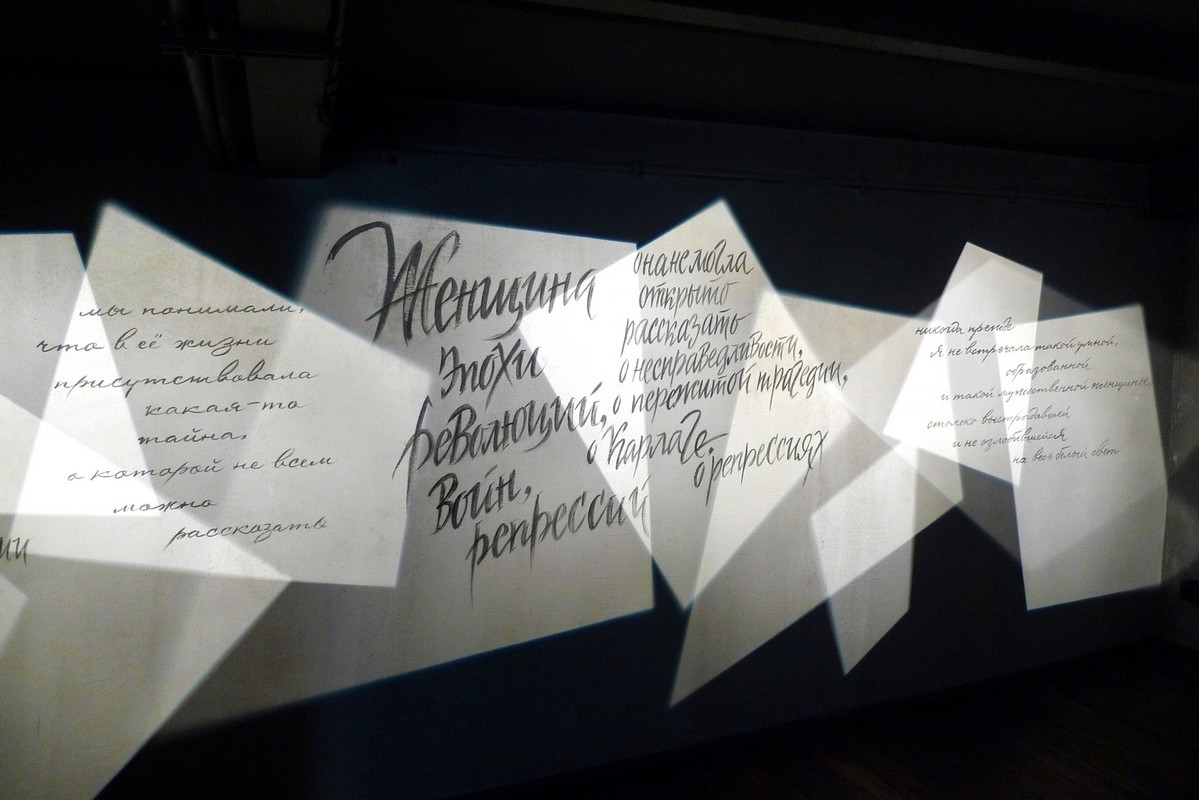 мы понимали,
что в её жизни
присутствовала
какая-то
тайна,
о которой не всем
можно
рассказать
Женщина
Эпохи
революций,
войн,
репрессий
она не могла
открыто
рассказать
о несправедливости,
о пережитой трагедии,
о Карлаге,
о репрессиях
никогда прежде
Я не встречала такой умной,
образованной
и такой мужественной женщины,
столько выстрадавшей
и не озлобившейся
на весь белый свет